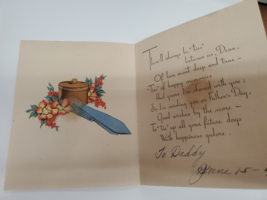 There'll always be "ties"
between us, Dear,
Of love most deep and true —
"Ties" of happy memories
And years I've shared with you;
So I'm sending you on Father's Day,
Good wishes by the score —
To "tie" up all your future days
With happiness galore.
To Daddy